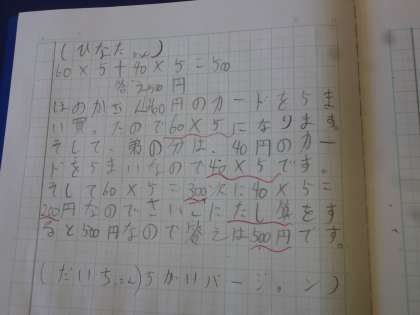 (ひなたさん)
60×5+40×5=500
答え500円
はのかさ60円のカードを5ま
い買ったので60×5になります。
そして、弟の分は、40円のカー
ドを5まいなので40×5です。
そして60×5=300次に40×5=
200円なのでさいごにたし算をす
ると500円なので答えは500円です。
(だいちさん)ちがいバージョン)